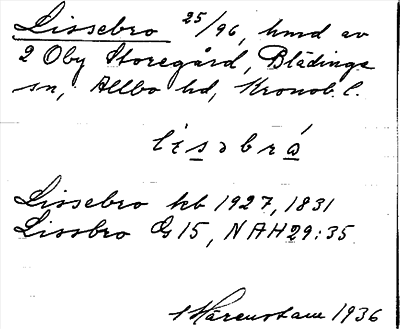 Lissebro 25/96, hmd av
2 Oby Storegård, Blädinge
sn, Allbo hd, Kronob. l.
lisəbrá
Lissebro kb 1927, 1831
Lissbro Gs 15, NAH 29:35
Härenstam 1936